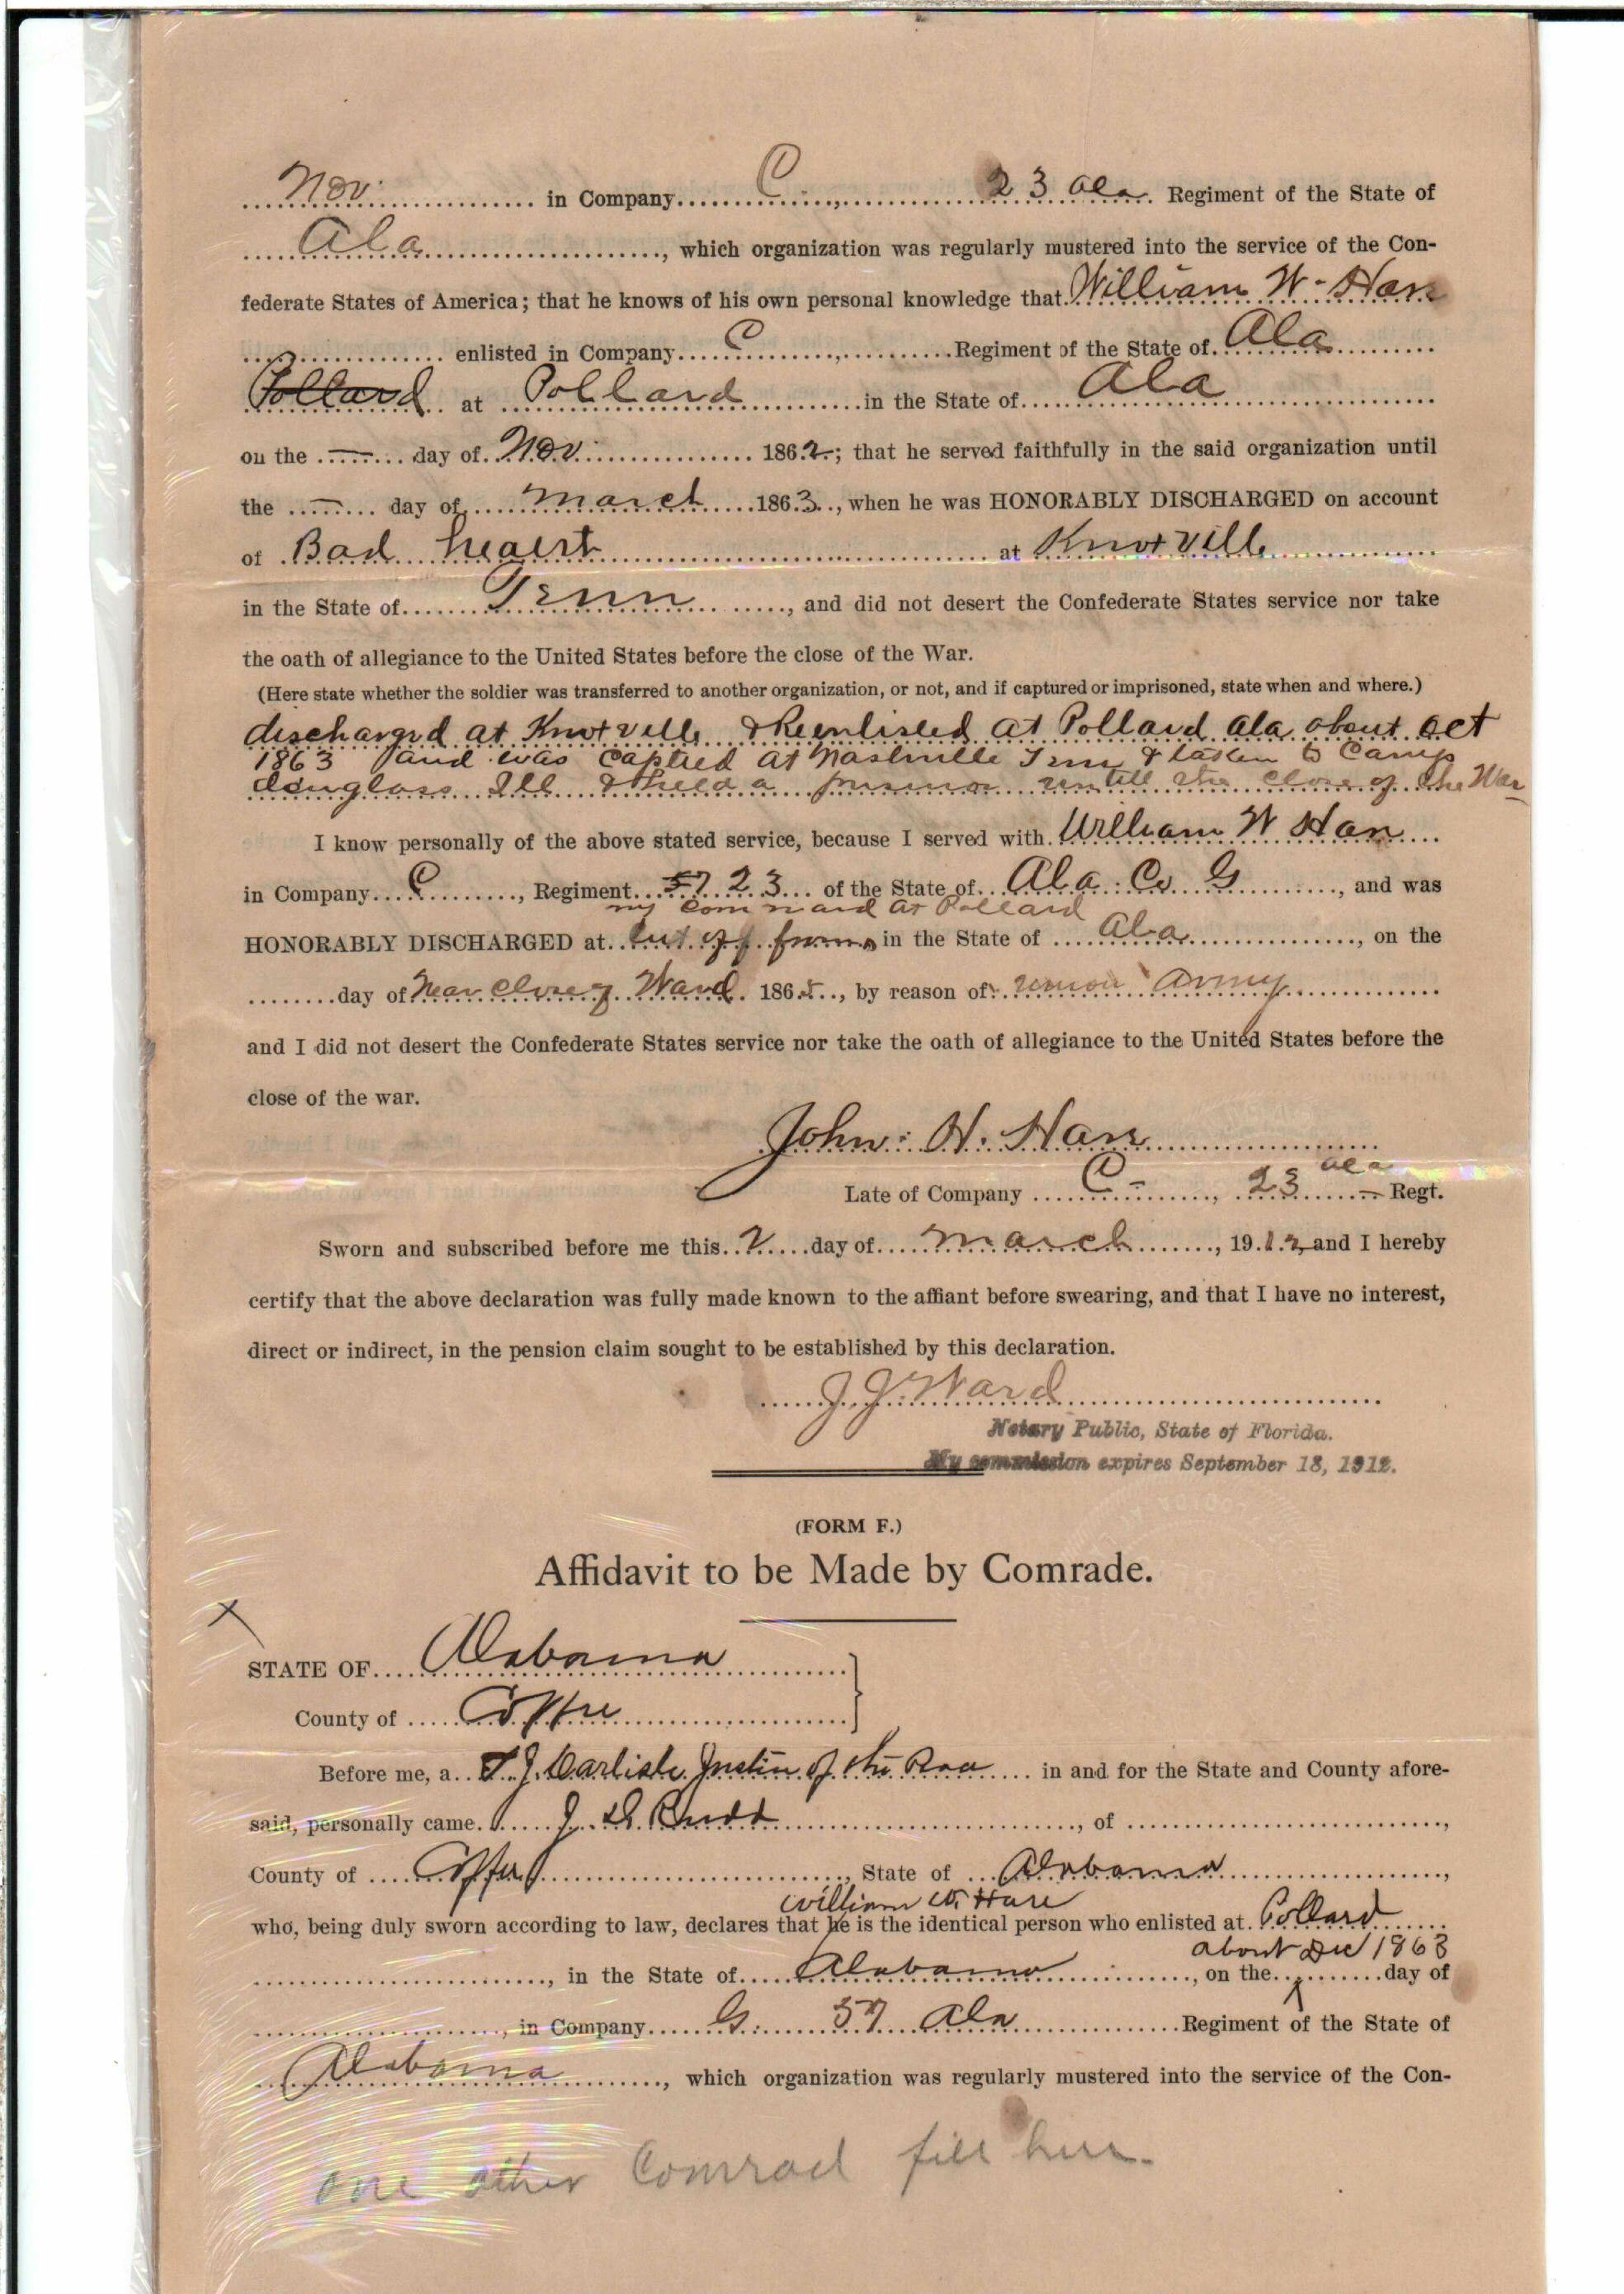 Nov. in Company C, 23 Ala Regiment of the State of
Ala, which organization was regularly mustered into the service of the Con-
federate States of America; that he knows of his own personal knowledge that William W. Hare
enlisted in Company C, Regiment of the State of Ala
Pollard at Pollard in the State of Ala
on the — day of Nov. 1862; that he served faithfully in the said organization until
the — day of March 1863, when he was HONORABLY DISCHARGED on account
of Bad heart at Knoxville
in the State of Tenn, and did not desert the Confederate States service nor take
the oath of allegiance to the United States before the close of the War.
(Here state whether the soldier was transferred to another organization, or not, and if captured or imprisoned, state when and where.)
discharged at Knoxville & Reenlisted at Pollard Ala about Oct
1863 and was captied at Nashville Tenn & taken to Camp
douglass Ill & held a prisnor untill the close of the War
I know personally of the above stated service, because I served with William W Hare
in Company C, Regiment 57 23 of the State of Ala Co G, and was
my command at Pollard
HONORABLY DISCHARGED at cut off from in the State of Ala, on the
day of Near close of War 1865, by reason of union Army
and I did not desert the Confederate States service nor take the oath of allegiance to the United States before the
close of the war.
John. H. Hare
Late of Company C -, 23 ala Regt.
Sworn and subscribed before me this 2 day of March, 1912 and I hereby
certify that the above declaration was fully made known to the affiant before swearing, and that I have no interest,
direct or indirect, in the pension claim sought to be established by this declaration.
J J. Ward
Notary Public, State of Florida.
My commission expires September 18, 1912.
(FORM F.)
Affidavit to be Made by Comrade.
X
STATE OF Alabama
County of Coffee
Before me, a T. J. Carlisle Justice of the Peace in and for the State and County afore-
said, personally came J. Rudd, of
County of Coffee, State of Alabama,
William W. Hare
who, being duly sworn according to law, declares that he is the identical person who enlisted at Pollard
about Dec 1863
, in the State of Alabama, on the day of
, in Company G. 57 Ala Regiment of the State of
Alabama, which organization was regularly mustered into the service of the Con-
one other Comrad fill here